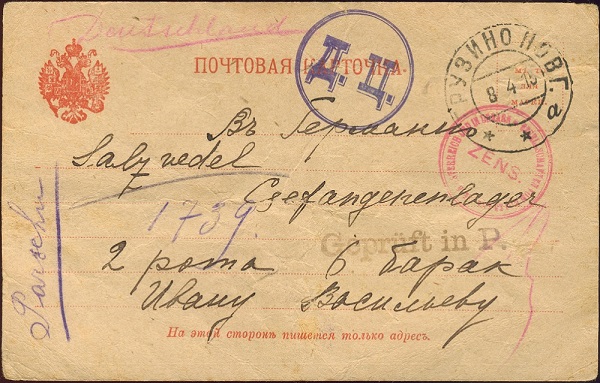 Deutschland
ПОЧТОВАЯ КАРТОЧКА.
Д. Ц.
ГРУЗИНО НОВГ.
8 4 16
г
Въ Германiю
Salzvedel
ZENS
Gefangenenlager
1739.
Geprüft in P.
2 рота 6 барак
Ивану Васильеву
На этой сторонѣ пишется только адресъ.